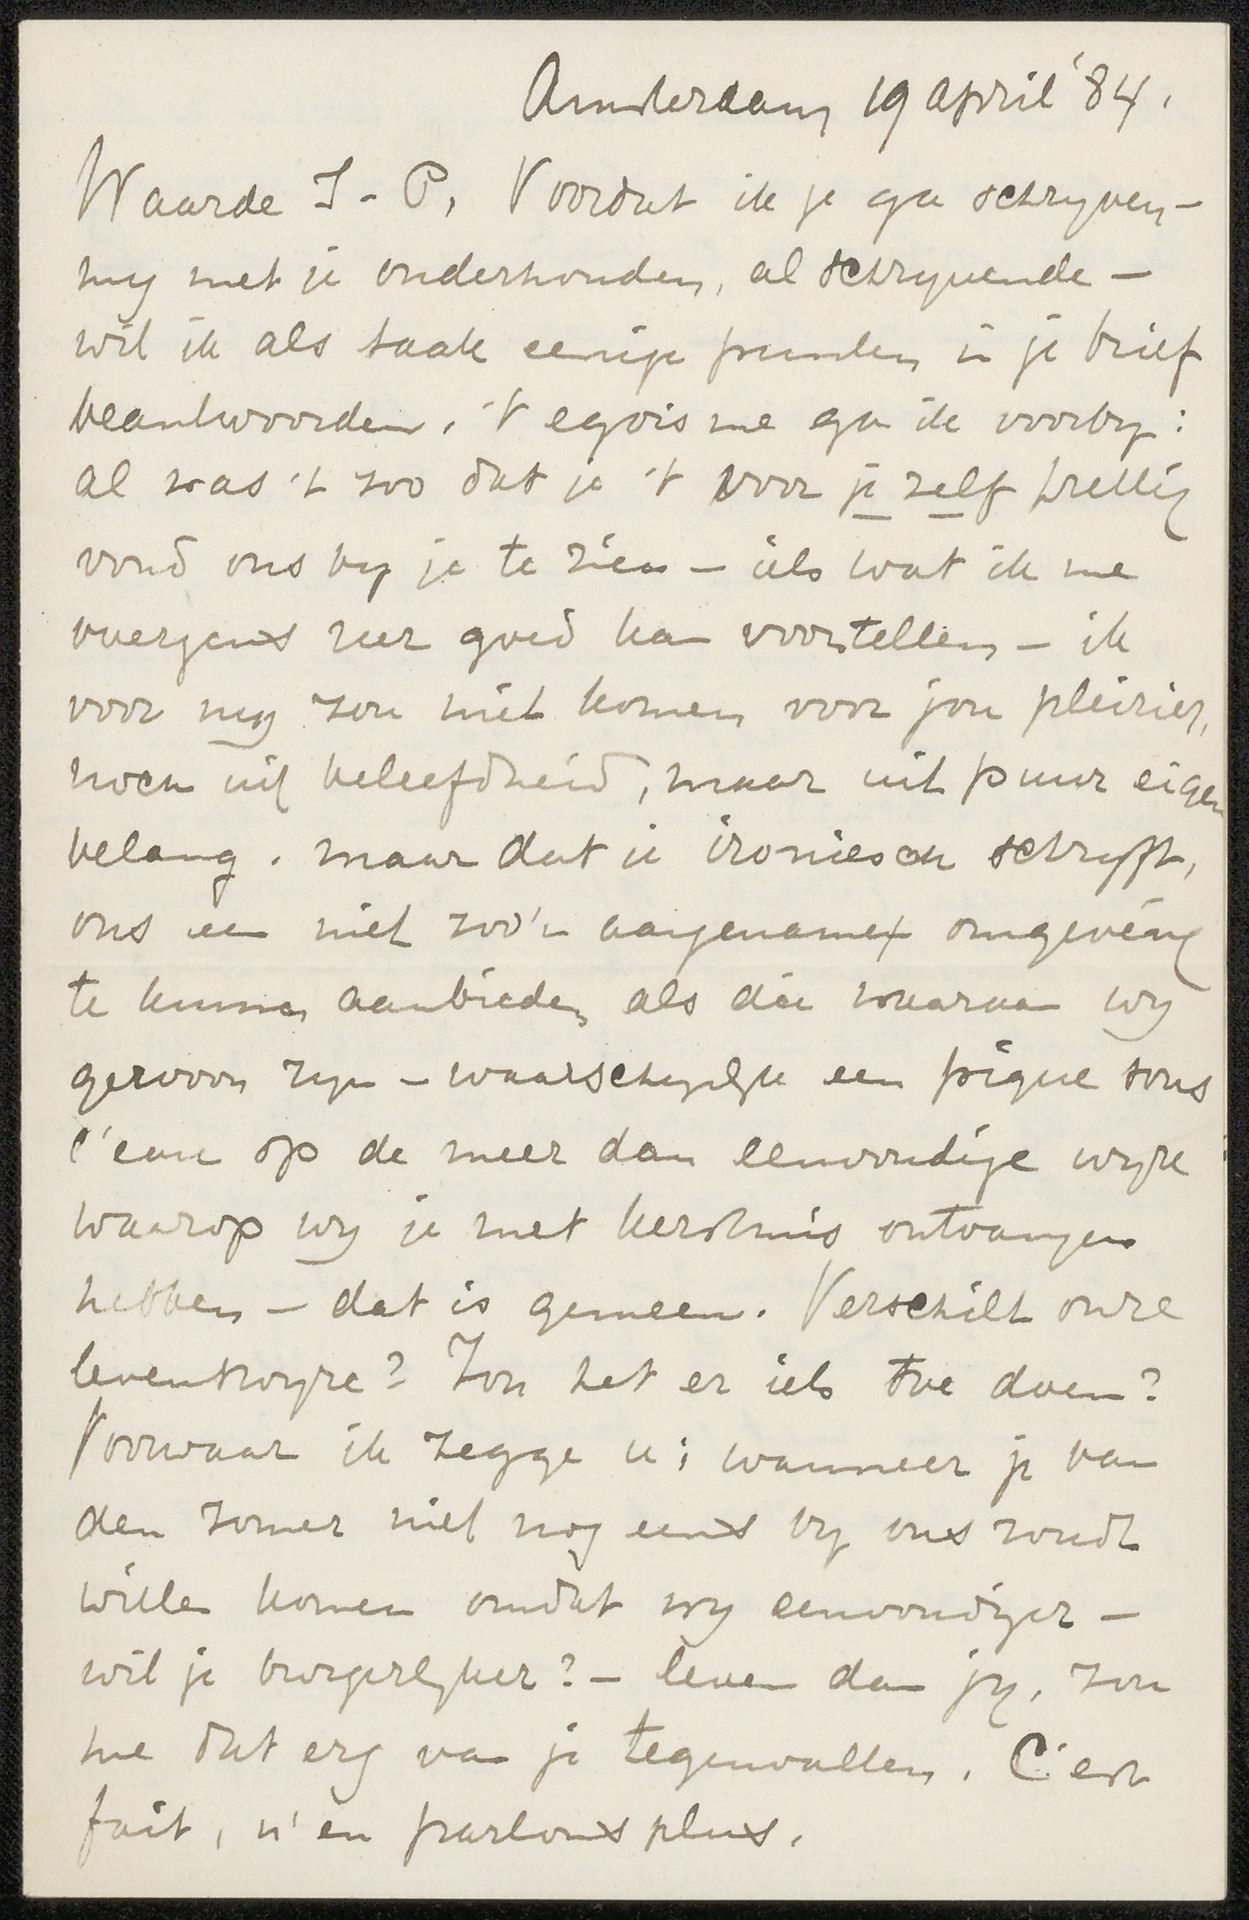 Amsterdam 19 April '84.
Waarde J-P, Voordat ik je ga schryven -
my met je onderhouden, al schryvende -
wil ik als taak eenige punten in je brief
beantwoorden. 't egoisme ga ik voorby:
al was 't zoo dat je 't voor je zelf prettig
vond ons by je te zien - iets wat ik me
overigens zeer goed kan voorstellen - ik
voor my zou niet komen voor jou pleizier,
noch uit beleefdheid, maar uit puur eigen
belang. maar dat je ironiesch schryft,
ons een niet zoo'n aangename omgeving
te kunnen aanbieden als die waaraan wy
gewoon zyn - waarschynlyk een pique sous
l'eau op de meer dan eenvoudige wyze
waarop wy je met kerstmis ontvangen
hebben - dat is gemeen. Verschilt onze
levenswyze? Zou het er iets toe doen?
Voorwaar ik zegge u; wanneer je van
den zomer niet nog eens by ons zoudt
willen komen omdat wy eenvoudiger -
wil je burgerlyker? - leven dan jy, zou
me dat erg van je tegenvallen. C'est
fait, n'en parlons plus.